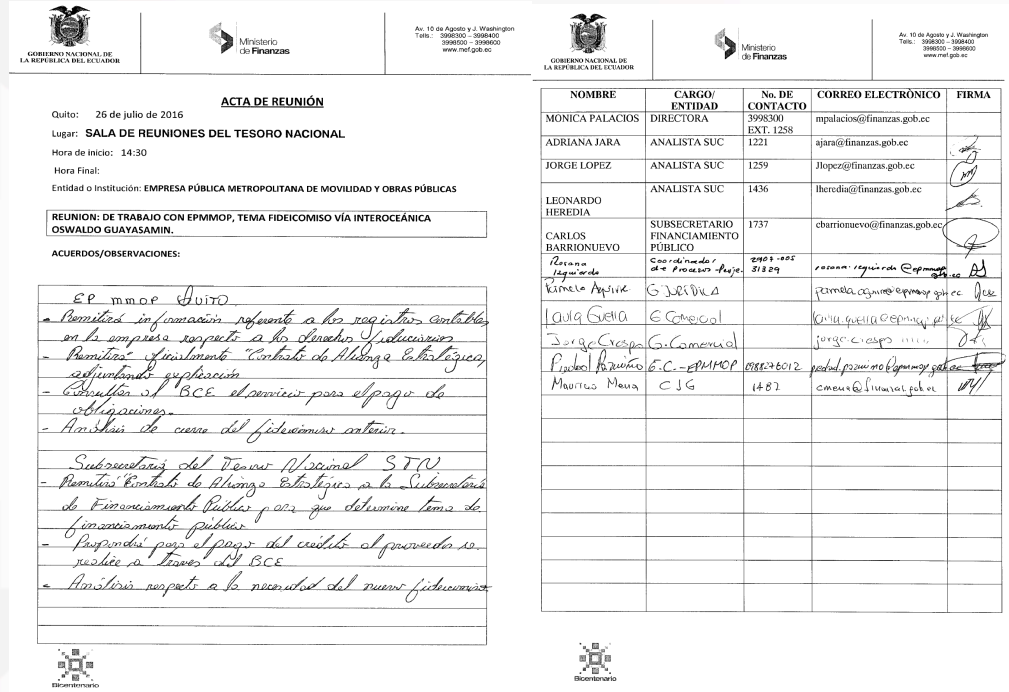 GOBIERNO NACIONAL DE
LA REPÚBLICA DEL ECUADOR
Ministerio
de Finanzas
Av. 10 de Agosto y J. Washington
Tells.: 3998300 – 3998400
3998500 – 3998600
www.mef.gob.ec
ACTA DE REUNIÓN
Quito: 26 de julio de 2016
Lugar: SALA DE REUNIONES DEL TESORO NACIONAL
Hora de inicio: 14:30
Hora Final:
Entidad o Institución: EMPRESA PÚBLICA METROPOLITANA DE MOVILIDAD Y OBRAS PÚBLICAS
REUNION: DE TRABAJO CON EPMMOP, TEMA FIDEICOMISO VÍA INTEROCEÁNICA
OSWALDO GUAYASAMIN.
ACUERDOS/OBSERVACIONES:
EP MMOP QUITO
- Remitirá información referente a los registros contables
en la empresa respecto a los derechos fiduciarios
- Remitirá oficialmente "Contrato de Alianza Estratégica,
adjuntando explicación
- Consultar al BCE el servicio para el pago de
obligaciones.
- Análisis de cierre del fideicomiso anterior.
Subsecretaría del Tesoro Nacional STN
- Remitirá "Contrato de Alianza Estratégica a la Subsecretaría
de Financiamiento Público para que determine tema de
financiamiento público
- Propondrá para el pago del crédito al proveedor se
realice a traves del BCE
- Análisis respecto a la necesidad del nuevo fideicomiso
Bicentenario
GOBIERNO NACIONAL DE
LA REPÚBLICA DEL ECUADOR
Ministerio
de Finanzas
Av. 10 de Agosto y J. Washington
Tells.: 3998300 – 3998400
3998500 – 3998600
www.mef.gob.ec
NOMBRE CARGO/ENTIDAD No. DE CONTACTO CORREO ELECTRÒNICO FIRMA
MONICA PALACIOS DIRECTORA 3998300 EXT. 1258 mpalacios@finanzas.gob.ec
ADRIANA JARA ANALISTA SUC 1221 ajara@finanzas.gob.ec
JORGE LOPEZ ANALISTA SUC 1259 Jlopez@finanzas.gob.ec
LEONARDO HEREDIA ANALISTA SUC 1436 lheredia@finanzas.gob.ec
CARLOS BARRIONUEVO SUBSECRETARIO FINANCIAMIENTO PÚBLICO 1737 cbarrionuevo@finanzas.gob.ec
Rosana Izquierdo Coordinadora de Procesos 2907-005 31329 rosana.izquierdo@epmmop.gob.ec
Pamela Aguirre G JURÍDICA
G Comercial
Jorge Crespo G. Comercial
G.C.-EPMMOP 0988276012
Mauricio Mena CJG 1487 cmena@finanzas.gob.ec
Bicentenario